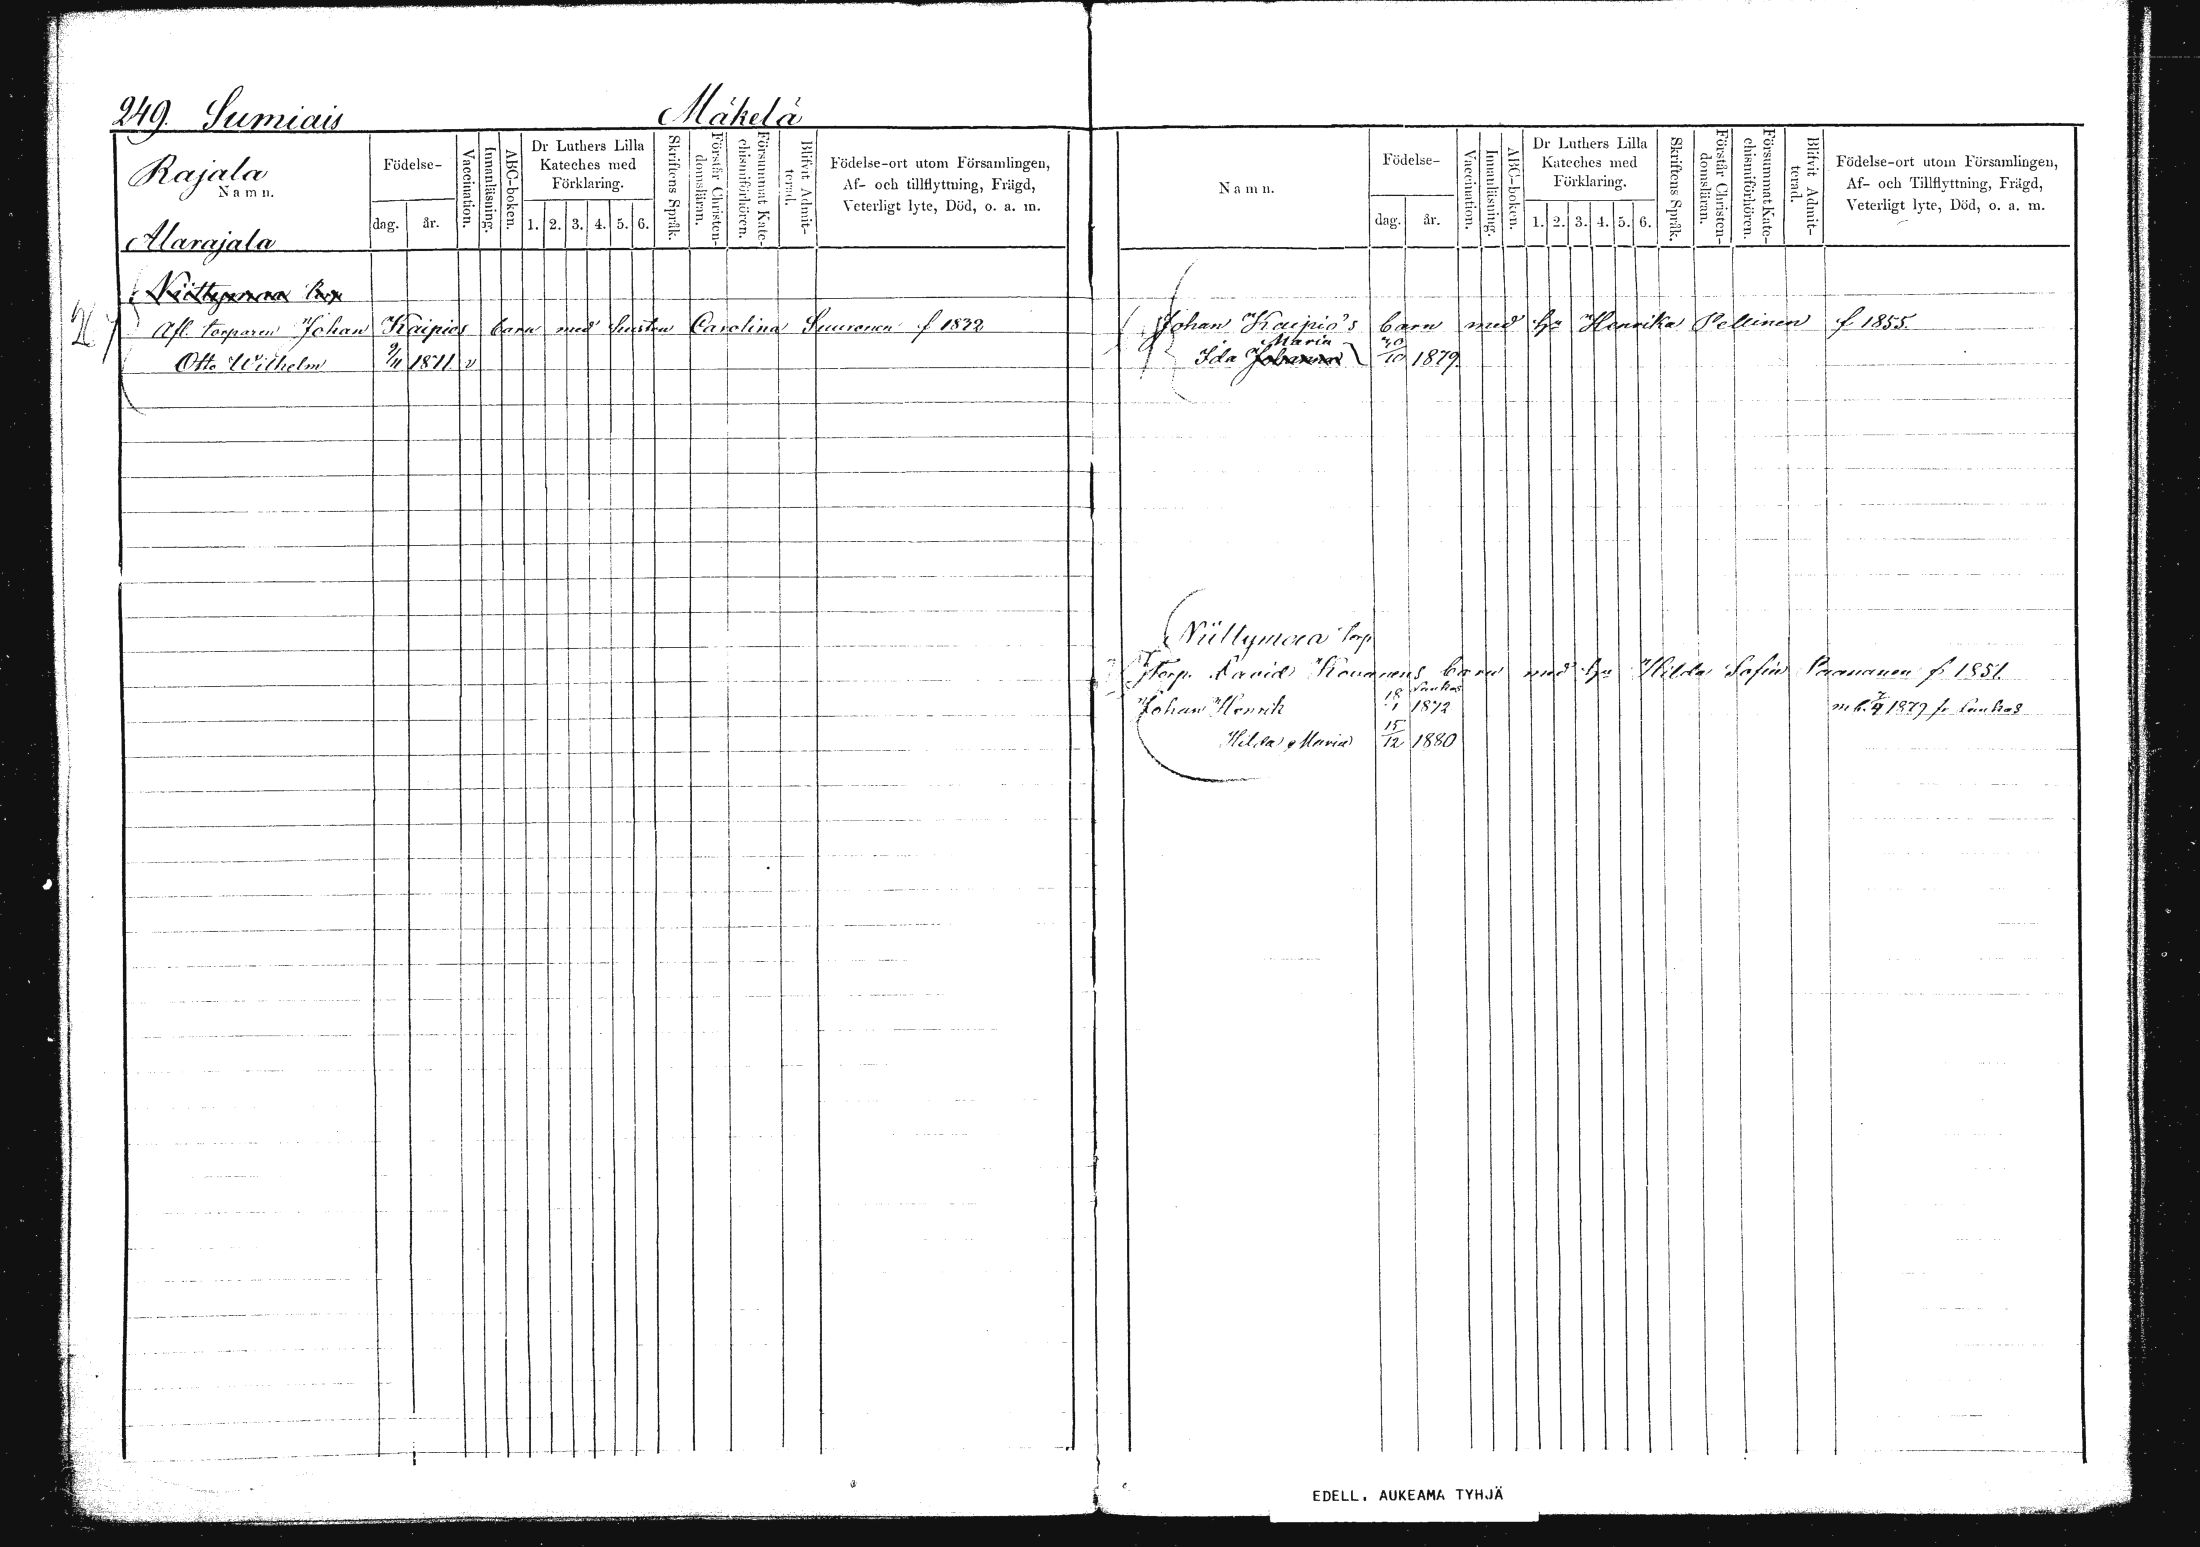 249. Sumiais Mäkelä
Rajala
Namn.
Alarajala
Födelse-
dag. år.
Vaccination.
Innanläsning.
ABC-boken.
Dr Luthers Lilla
Kateches med
Förklaring.
1. 2. 3. 4. 5. 6.
Skriftens Språk.
Förstår Christen-
domsläran.
Försummat Kate-
chismiförhören.
Blifvit Admit-
terad.
Födelse-ort utom Församlingen,
Af- och tillflyttning, Frägd,
Veterligt lyte, Död, o. a. m.
Niittymaa Torp
Afl. torparen Johan Kaipios barn med hustru Carolina Suuronen f 1832
Otto Wilhelm 9/11 1871 v
Namn.
Födelse-
dag. år.
Vaccination.
Innanläsning.
ABC-boken.
Dr Luthers Lilla
Kateches med
Förklaring.
1. 2. 3. 4. 5. 6.
Skriftens Språk.
Förstår Christen-
domsläran.
Försummat Kate-
chismiförhören.
Blifvit Admit-
terad.
Födelse-ort utom Församlingen,
Af- och Tillflyttning, Frägd,
Veterligt lyte, Död, o. a. m.
Johan Kaipio's barn med hu Henrika Pellinen f 1855.
Maria
Ida Johanna 20/10 1879.
Niittymaa Torp
Torp. David Kovanens barn med hu Hilda Sofia Paananen f 1851.
Laukas
Johan Henrik 18/1 1872 1879 fr Laukas
Hilda Maria 15/12 1880
EDELL. AUKEAMA TYHJÄ